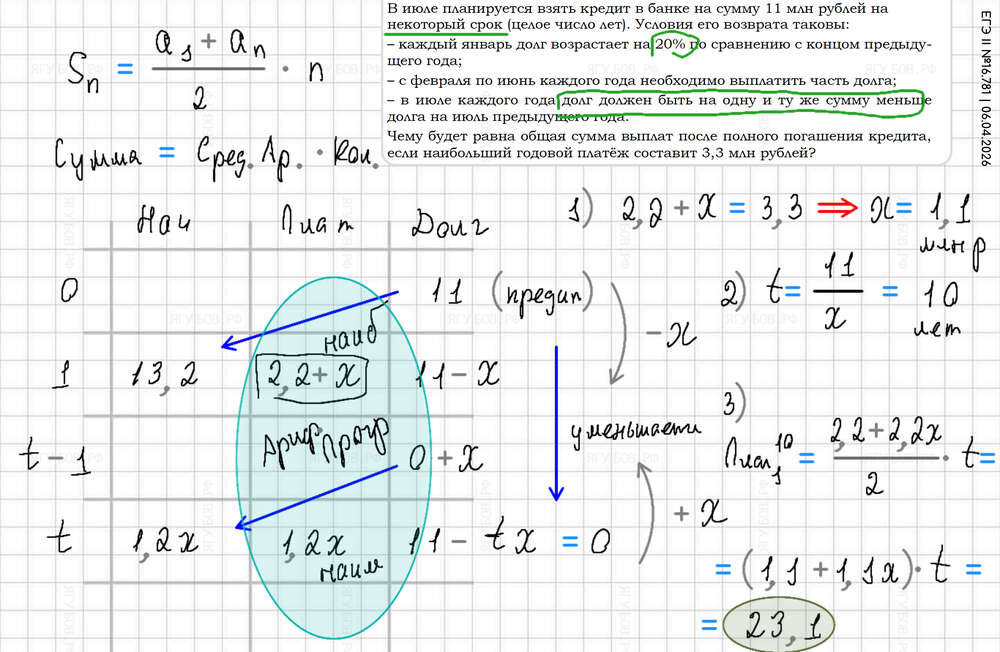 В июле планируется взять кредит в банке на сумму 11 млн рублей на
некоторый срок (целое число лет). Условия его возврата таковы:
– каждый январь долг возрастает на 20% по сравнению с концом предыду-
щего года;
– с февраля по июнь каждого года необходимо выплатить часть долга;
– в июле каждого года долг должен быть на одну и ту же сумму меньше
долга на июль предыдущего года.
Чему будет равна общая сумма выплат после полного погашения кредита,
если наибольший годовой платёж составит 3,3 млн рублей?
ЕГЭ II №16.781 | 06.04.2026
Sn = (a1 + an)/2 · n
Сумма = Сред. Ар. · Кол.
Нач Плат Долг
0 11 (предып)
наиб
1 13,2 2,2 + x 11 – x
Ариф Прогр
t – 1 0 + x
t 1,2x 1,2x 11 – tx = 0
наим
– x
уменьшается
+ x
1) 2,2 + x = 3,3 ⇒ x = 1,1
млн р
2) t = 11/x = 10
лет
3)
Плат 1 10 = (2,2 + 2,2x)/2 · t =
= (1,1 + 1,1x) · t =
= 23,1